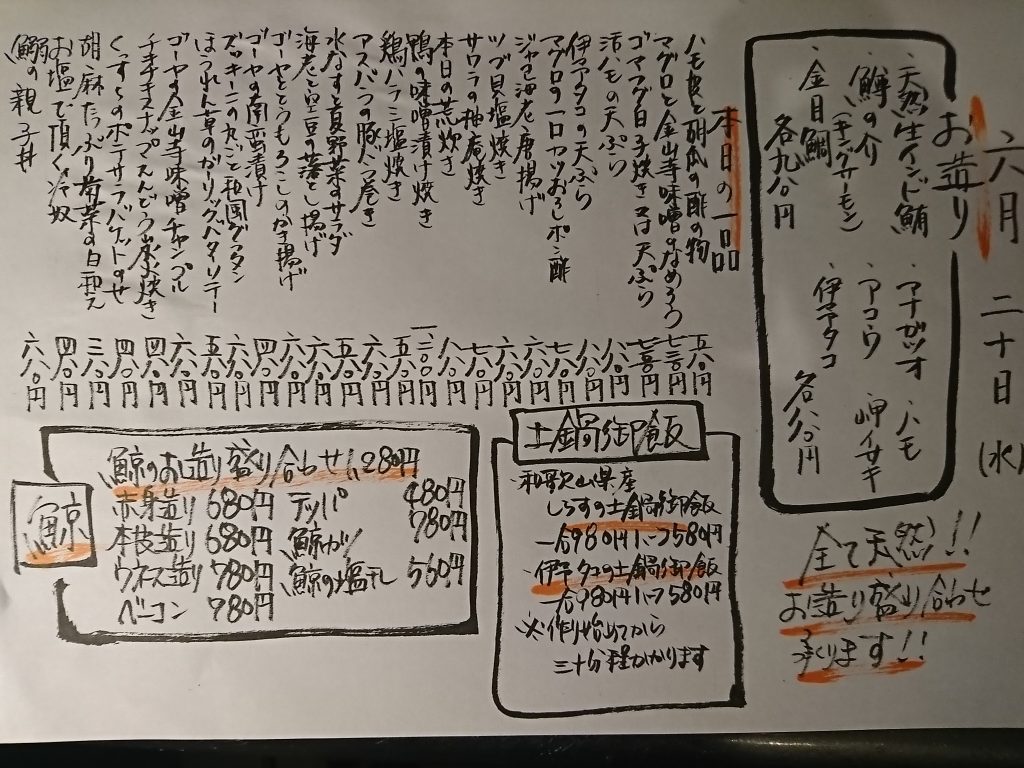 六月二十日(水)
お造り
・天然生インド鮪
・鱒の介
(キングサーモン)
・金目鯛
各九八〇円
・アナガツオ ・ハモ
・アコウ ・岬イサキ
・伊予タコ
各八八〇円
全て天然!!
お造り盛り合わせ
承ります!!
本日の一品
ハモ皮と胡瓜の酢の物 五八〇円
マグロと金山寺味噌のなめろう 七三〇円
ゴママグロ白子炊き又は天ぷら 七五〇円
活ハモの天ぷら 八八〇円
伊予タコの天ぷら 八八〇円
マグロの一口カツおろしポン酢 七八〇円
ジャコ海老唐揚げ 六八〇円
ツブ貝塩焼き 六八〇円
サワラの柚庵焼き 七八〇円
本日の荒炊き 八八〇円
鴨の味噌漬け焼き 一二〇〇円
鶏ハラミ塩焼き 五八〇円
アスパラの豚バラ巻き 六八〇円
水なすと夏野菜のサラダ 五八〇円
海老と豆の落とし揚げ 六八〇円
ゴーヤととうもろこしのかき揚げ 六八〇円
ゴーヤの南蛮漬け 四八〇円
ズッキーニの丸ごと和風グラタン 六八〇円
ほうれん草のガーリックバターソテー 五八〇円
ゴーヤの金山寺味噌チャンプル 六八〇円
スナップえんどう炭火焼き 四八〇円
くずしのポテサラバゲットのせ 四八〇円
胡麻たっぷり 菜の白和え 三八〇円
お塩で頂く冷奴 四八〇円
鰯の親子丼 六八〇円
土鍋御飯
・和歌山県産
しらすの土鍋御飯
一合980円 1.5合1580円
・伊予タコの土鍋御飯
一合980円 1.5合1580円
※作り始めてから
三十分程かかります
鯨
鯨のお造り盛り合わせ1,280円
赤身造り 680円 テッパ 480円
本皮造り 680円 鯨カツ 780円
ウネス造り 780円 鯨の塩干し 560円
ベーコン 780円